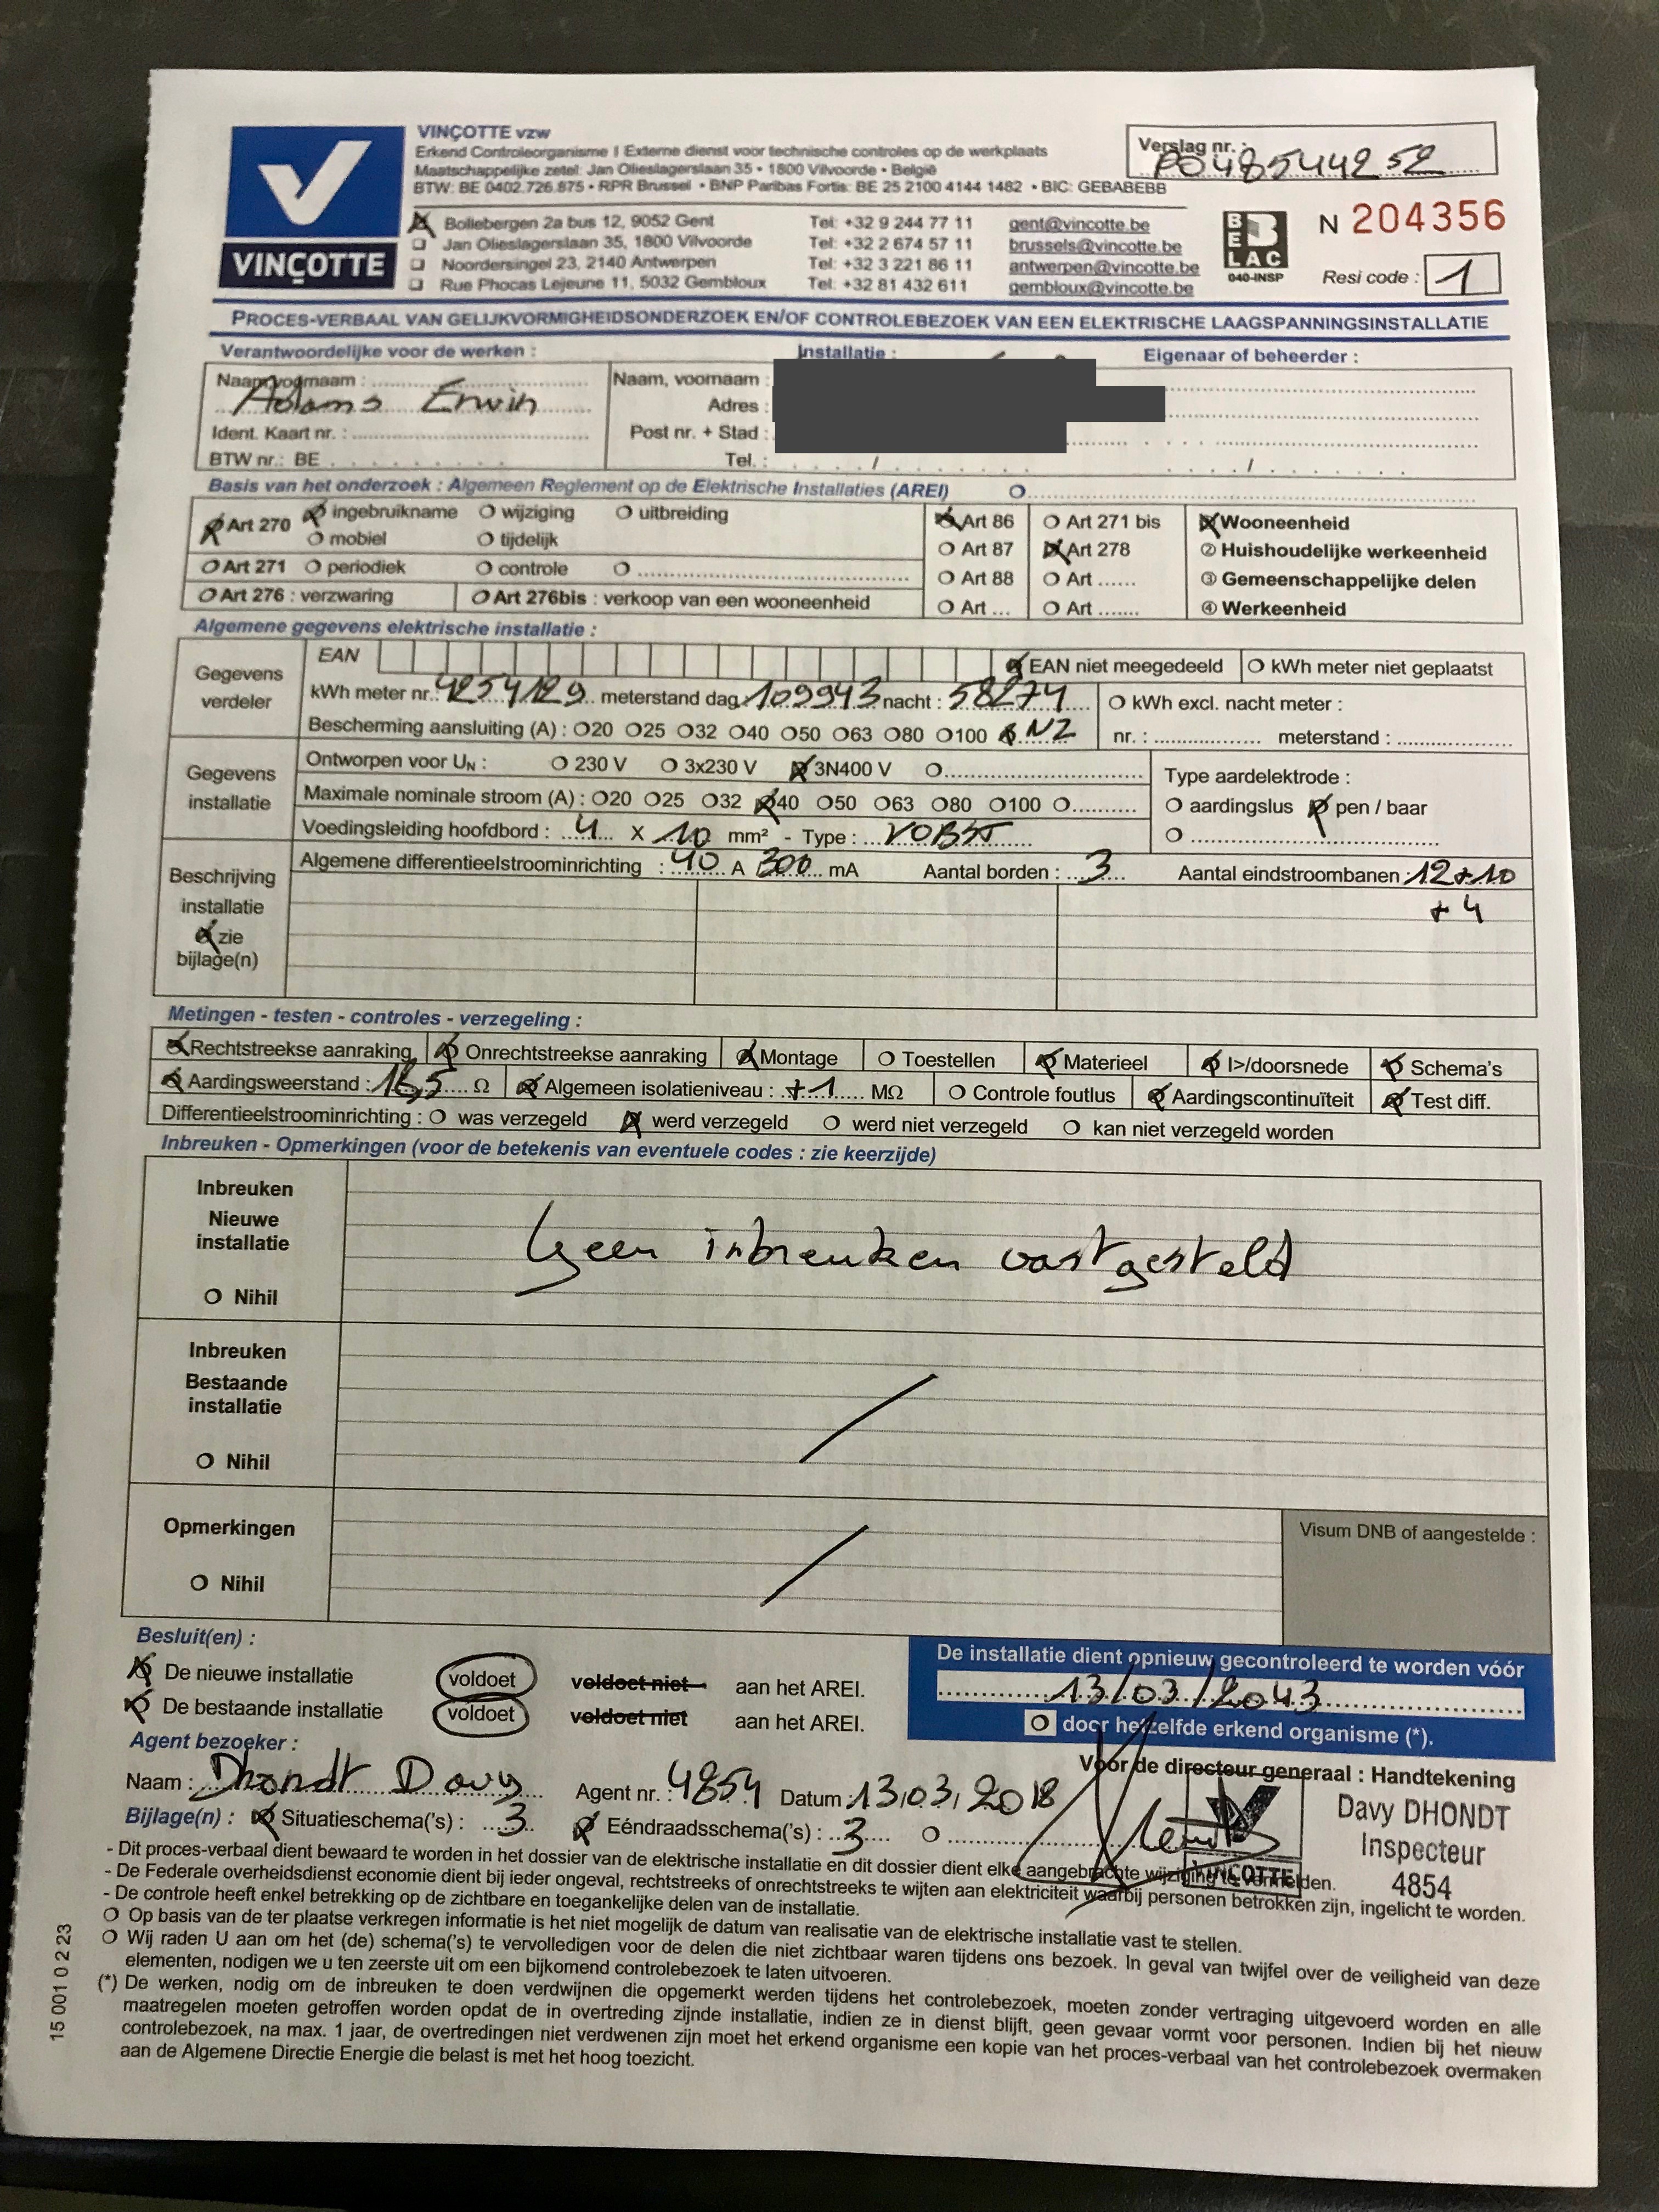 VINÇOTTE
VINÇOTTE vzw
Erkend Controleorganisme I Externe dienst voor technische controles op de werkplaats
Maatschappelijke zetel: Jan Olieslagerslaan 35 • 1800 Vilvoorde • België
BTW: BE 0402.726.875 • RPR Brussel • BNP Paribas Fortis: BE 25 2100 4144 1482 • BIC: GEBABEBB
Verslag nr. :
P0485442 52
Bollebergen 2a bus 12, 9052 Gent Tel: +32 9 244 77 11 gent@vincotte.be
Jan Olieslagerslaan 35, 1800 Vilvoorde Tel: +32 2 674 57 11 brussels@vincotte.be
Noordersingel 23, 2140 Antwerpen Tel: +32 3 221 86 11 antwerpen@vincotte.be
Rue Phocas Lejeune 11, 5032 Gembloux Tel: +32 81 432 611 gembloux@vincotte.be
BELAC
040-INSP
N 204356
Resi code : 1
PROCES-VERBAAL VAN GELIJKVORMIGHEIDSONDERZOEK EN/OF CONTROLEBEZOEK VAN EEN ELEKTRISCHE LAAGSPANNINGSINSTALLATIE
Verantwoordelijke voor de werken : Installatie : Eigenaar of beheerder :
Naam, voornaam : Naam, voornaam :
Adams Erwin Adres :
Ident. Kaart nr. : Post nr. + Stad :
BTW nr.: BE Tel. : / /
Basis van het onderzoek : Algemeen Reglement op de Elektrische Installaties (AREI)
Art 270 ingebruikname wijziging uitbreiding Art 86 Art 271 bis Wooneenheid
mobiel tijdelijk Art 87 Art 278 ② Huishoudelijke werkeenheid
Art 271 periodiek controle Art 88 Art ...... ③ Gemeenschappelijke delen
Art 276 : verzwaring Art 276bis : verkoop van een wooneenheid Art ... Art ....... ④ Werkeenheid
Algemene gegevens elektrische installatie :
Gegevens verdeler
EAN EAN niet meegedeeld kWh meter niet geplaatst
kWh meter nr.: 4254129 meterstand dag: 109943 nacht : 58274 kWh excl. nacht meter :
Bescherming aansluiting (A) : 20 25 32 40 50 63 80 100 NZ nr. : meterstand :
Gegevens installatie
Ontworpen voor UN : 230 V 3x230 V 3N400 V Type aardelektrode :
Maximale nominale stroom (A) : 20 25 32 40 50 63 80 100 aardingslus pen / baar
Voedingsleiding hoofdbord : 4 x 10 mm² - Type : VOBST
Beschrijving installatie
zie bijlage(n)
Algemene differentieelstroominrichting : 40 A 300 mA Aantal borden : 3 Aantal eindstroombanen : 12+10
+ 4
Metingen - testen - controles - verzegeling :
Rechtstreekse aanraking Onrechtstreekse aanraking Montage Toestellen Materieel I>/doorsnede Schema's
Aardingsweerstand : 16,5 Ω Algemeen isolatieniveau : +1 MΩ Controle foutlus Aardingscontinuïteit Test diff.
Differentieelstroominrichting : was verzegeld werd verzegeld werd niet verzegeld kan niet verzegeld worden
Inbreuken - Opmerkingen (voor de betekenis van eventuele codes : zie keerzijde)
Inbreuken
Nieuwe
installatie
Geen inbreuken vastgesteld
Nihil
Inbreuken
Bestaande
installatie
Nihil
Opmerkingen
Nihil
Visum DNB of aangestelde :
Besluit(en) :
De nieuwe installatie voldoet voldoet niet aan het AREI.
De bestaande installatie voldoet voldoet niet aan het AREI.
De installatie dient opnieuw gecontroleerd te worden vóór
13/03/2043
door hetzelfde erkend organisme (*).
Agent bezoeker :
Naam : Dhondt Davy Agent nr. : 4854 Datum : 13/03/2018
Voor de directeur generaal : Handtekening
Davy DHONDT
Inspecteur
4854
VINÇOTTE
Bijlage(n) : Situatieschema('s) : 3 Eéndraadsschema('s) : 3
- Dit proces-verbaal dient bewaard te worden in het dossier van de elektrische installatie en dit dossier dient elke aangebrachte wijziging te vermelden.
- De Federale overheidsdienst economie dient bij ieder ongeval, rechtstreeks of onrechtstreeks te wijten aan elektriciteit waarbij personen betrokken zijn, ingelicht te worden.
- De controle heeft enkel betrekking op de zichtbare en toegankelijke delen van de installatie.
Op basis van de ter plaatse verkregen informatie is het niet mogelijk de datum van realisatie van de elektrische installatie vast te stellen.
Wij raden U aan om het (de) schema('s) te vervolledigen voor de delen die niet zichtbaar waren tijdens ons bezoek. In geval van twijfel over de veiligheid van deze
elementen, nodigen we u ten zeerste uit om een bijkomend controlebezoek te laten uitvoeren.
(*) De werken, nodig om de inbreuken te doen verdwijnen die opgemerkt werden tijdens het controlebezoek, moeten zonder vertraging uitgevoerd worden en alle
maatregelen moeten getroffen worden opdat de in overtreding zijnde installatie, indien ze in dienst blijft, geen gevaar vormt voor personen. Indien bij het nieuw
controlebezoek, na max. 1 jaar, de overtredingen niet verdwenen zijn moet het erkend organisme een kopie van het proces-verbaal van het controlebezoek overmaken
aan de Algemene Directie Energie die belast is met het hoog toezicht.
15 001 0 2 23